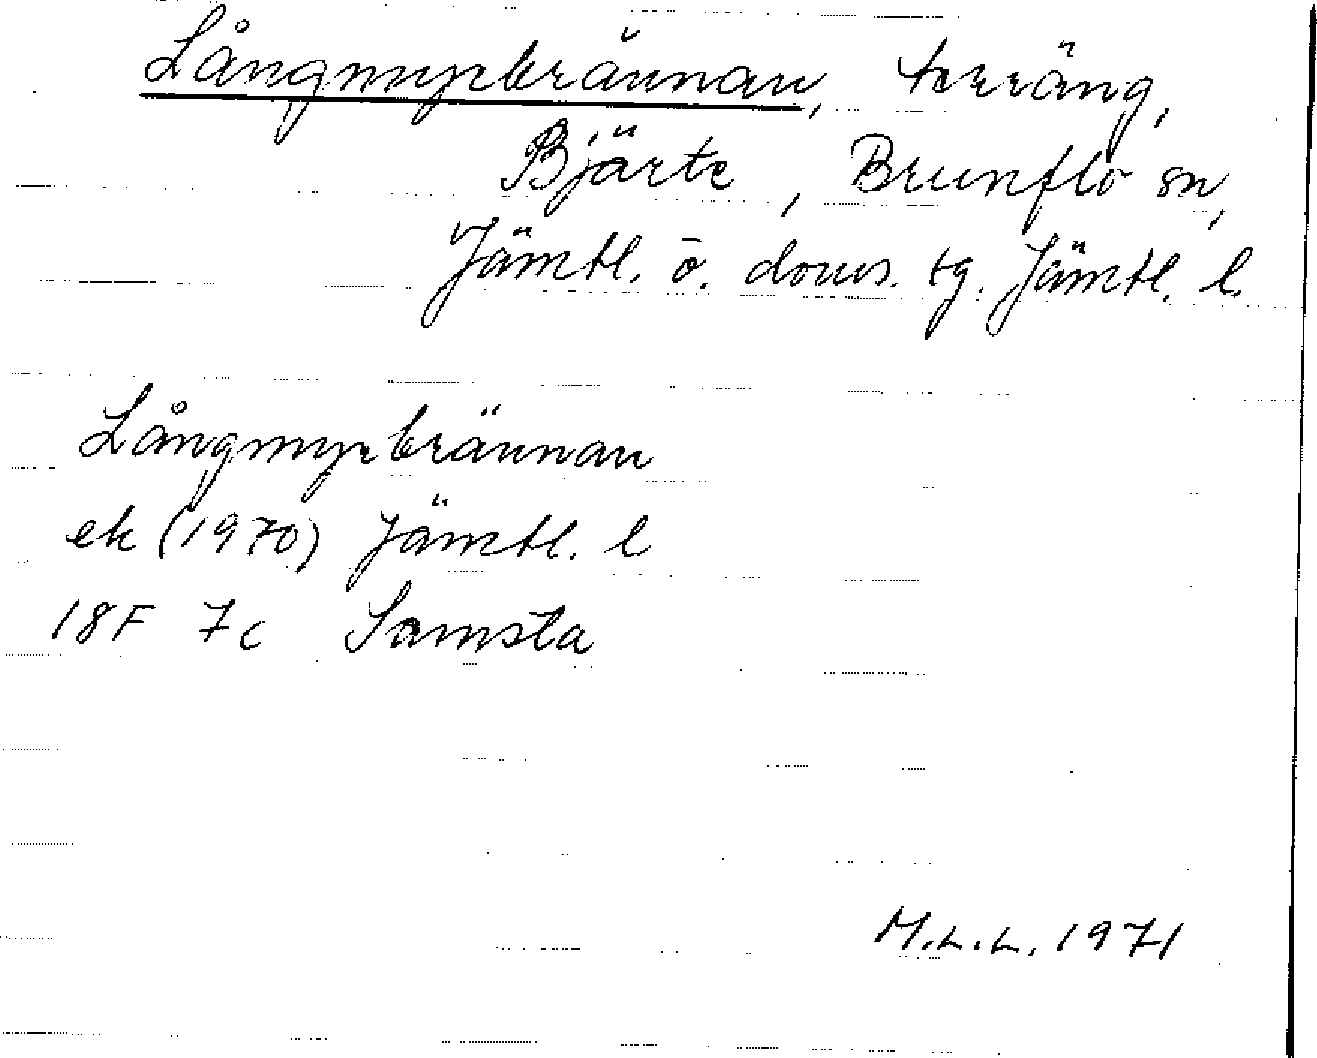 Långmyrbrännan, terräng,
Bjärte, Brunflo sn,
Jämtl. ö. doms. tg. Jämtl. l
Långmyrbrännan
ek (1970) Jämtl. l
18F 7c Samsta
M.L.L. 1971